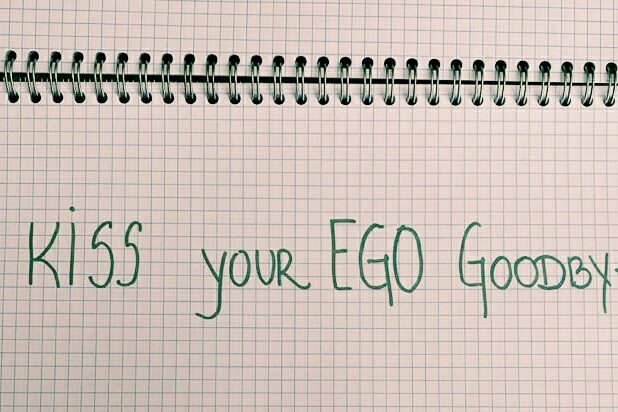 KiSS YOUR EGO GOODBY